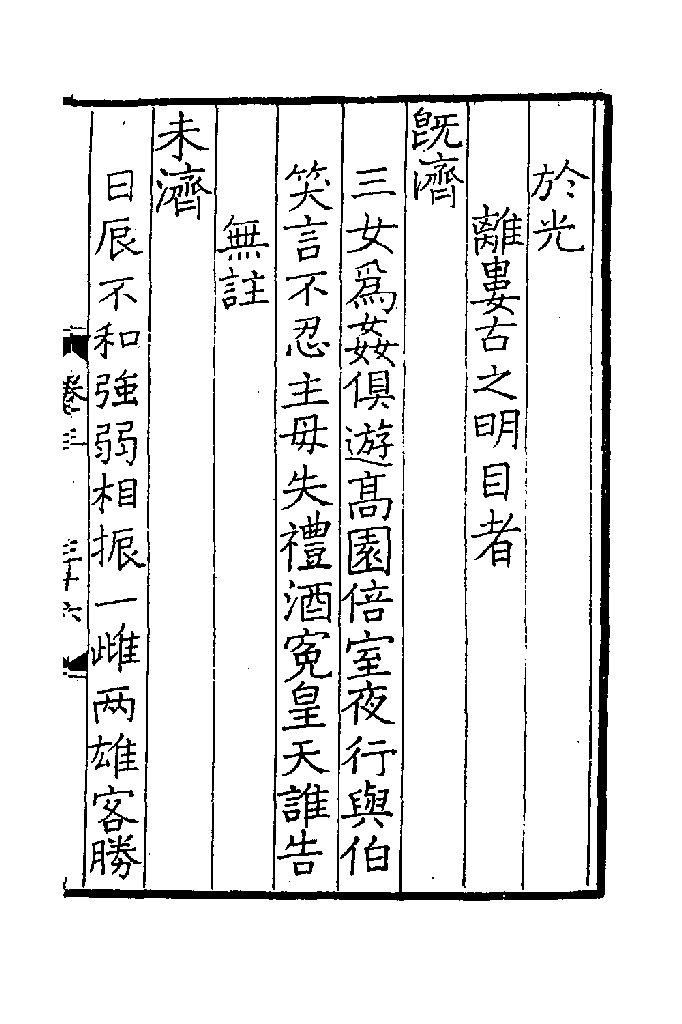 於光
離婁古之明目者
既濟
三女為姦俱遊高園倍室夜行與伯
笑言不忍主毋失禮酒寃皇天誰告
無註
未濟
日辰不和強弱相振一雌两雄客勝
卷三
三十六